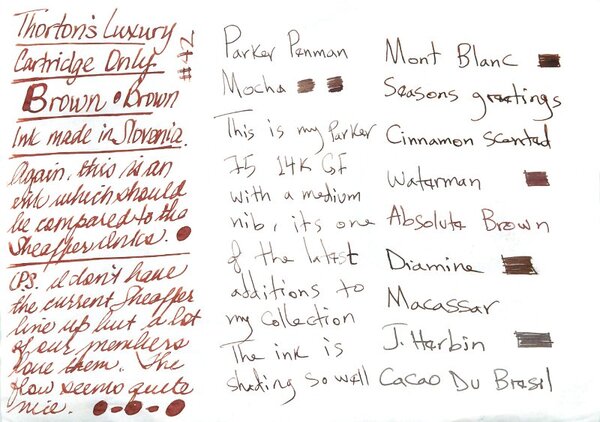 Thorton's Luxury
Cartridge Only
#42
Brown • Brown
Ink made in Slovenia.
Again, this is an
ink which should
be compared to the
Sheaffer inks.
P.S. I don't have
the current Sheaffer
line up but a lot
of our members
love them. The
flow seems quite
nice.
Parker Penman
Mocha
This is my Parker
75 14K GF
with a medium
nib, its one
of the latest
additions to
my collection
The ink is
shading so well
Mont Blanc
Seasons greetings
Cinnamon scented
Waterman
Absolute Brown
Diamine
Macassar
J. Herbin
Cacao Du Bresil